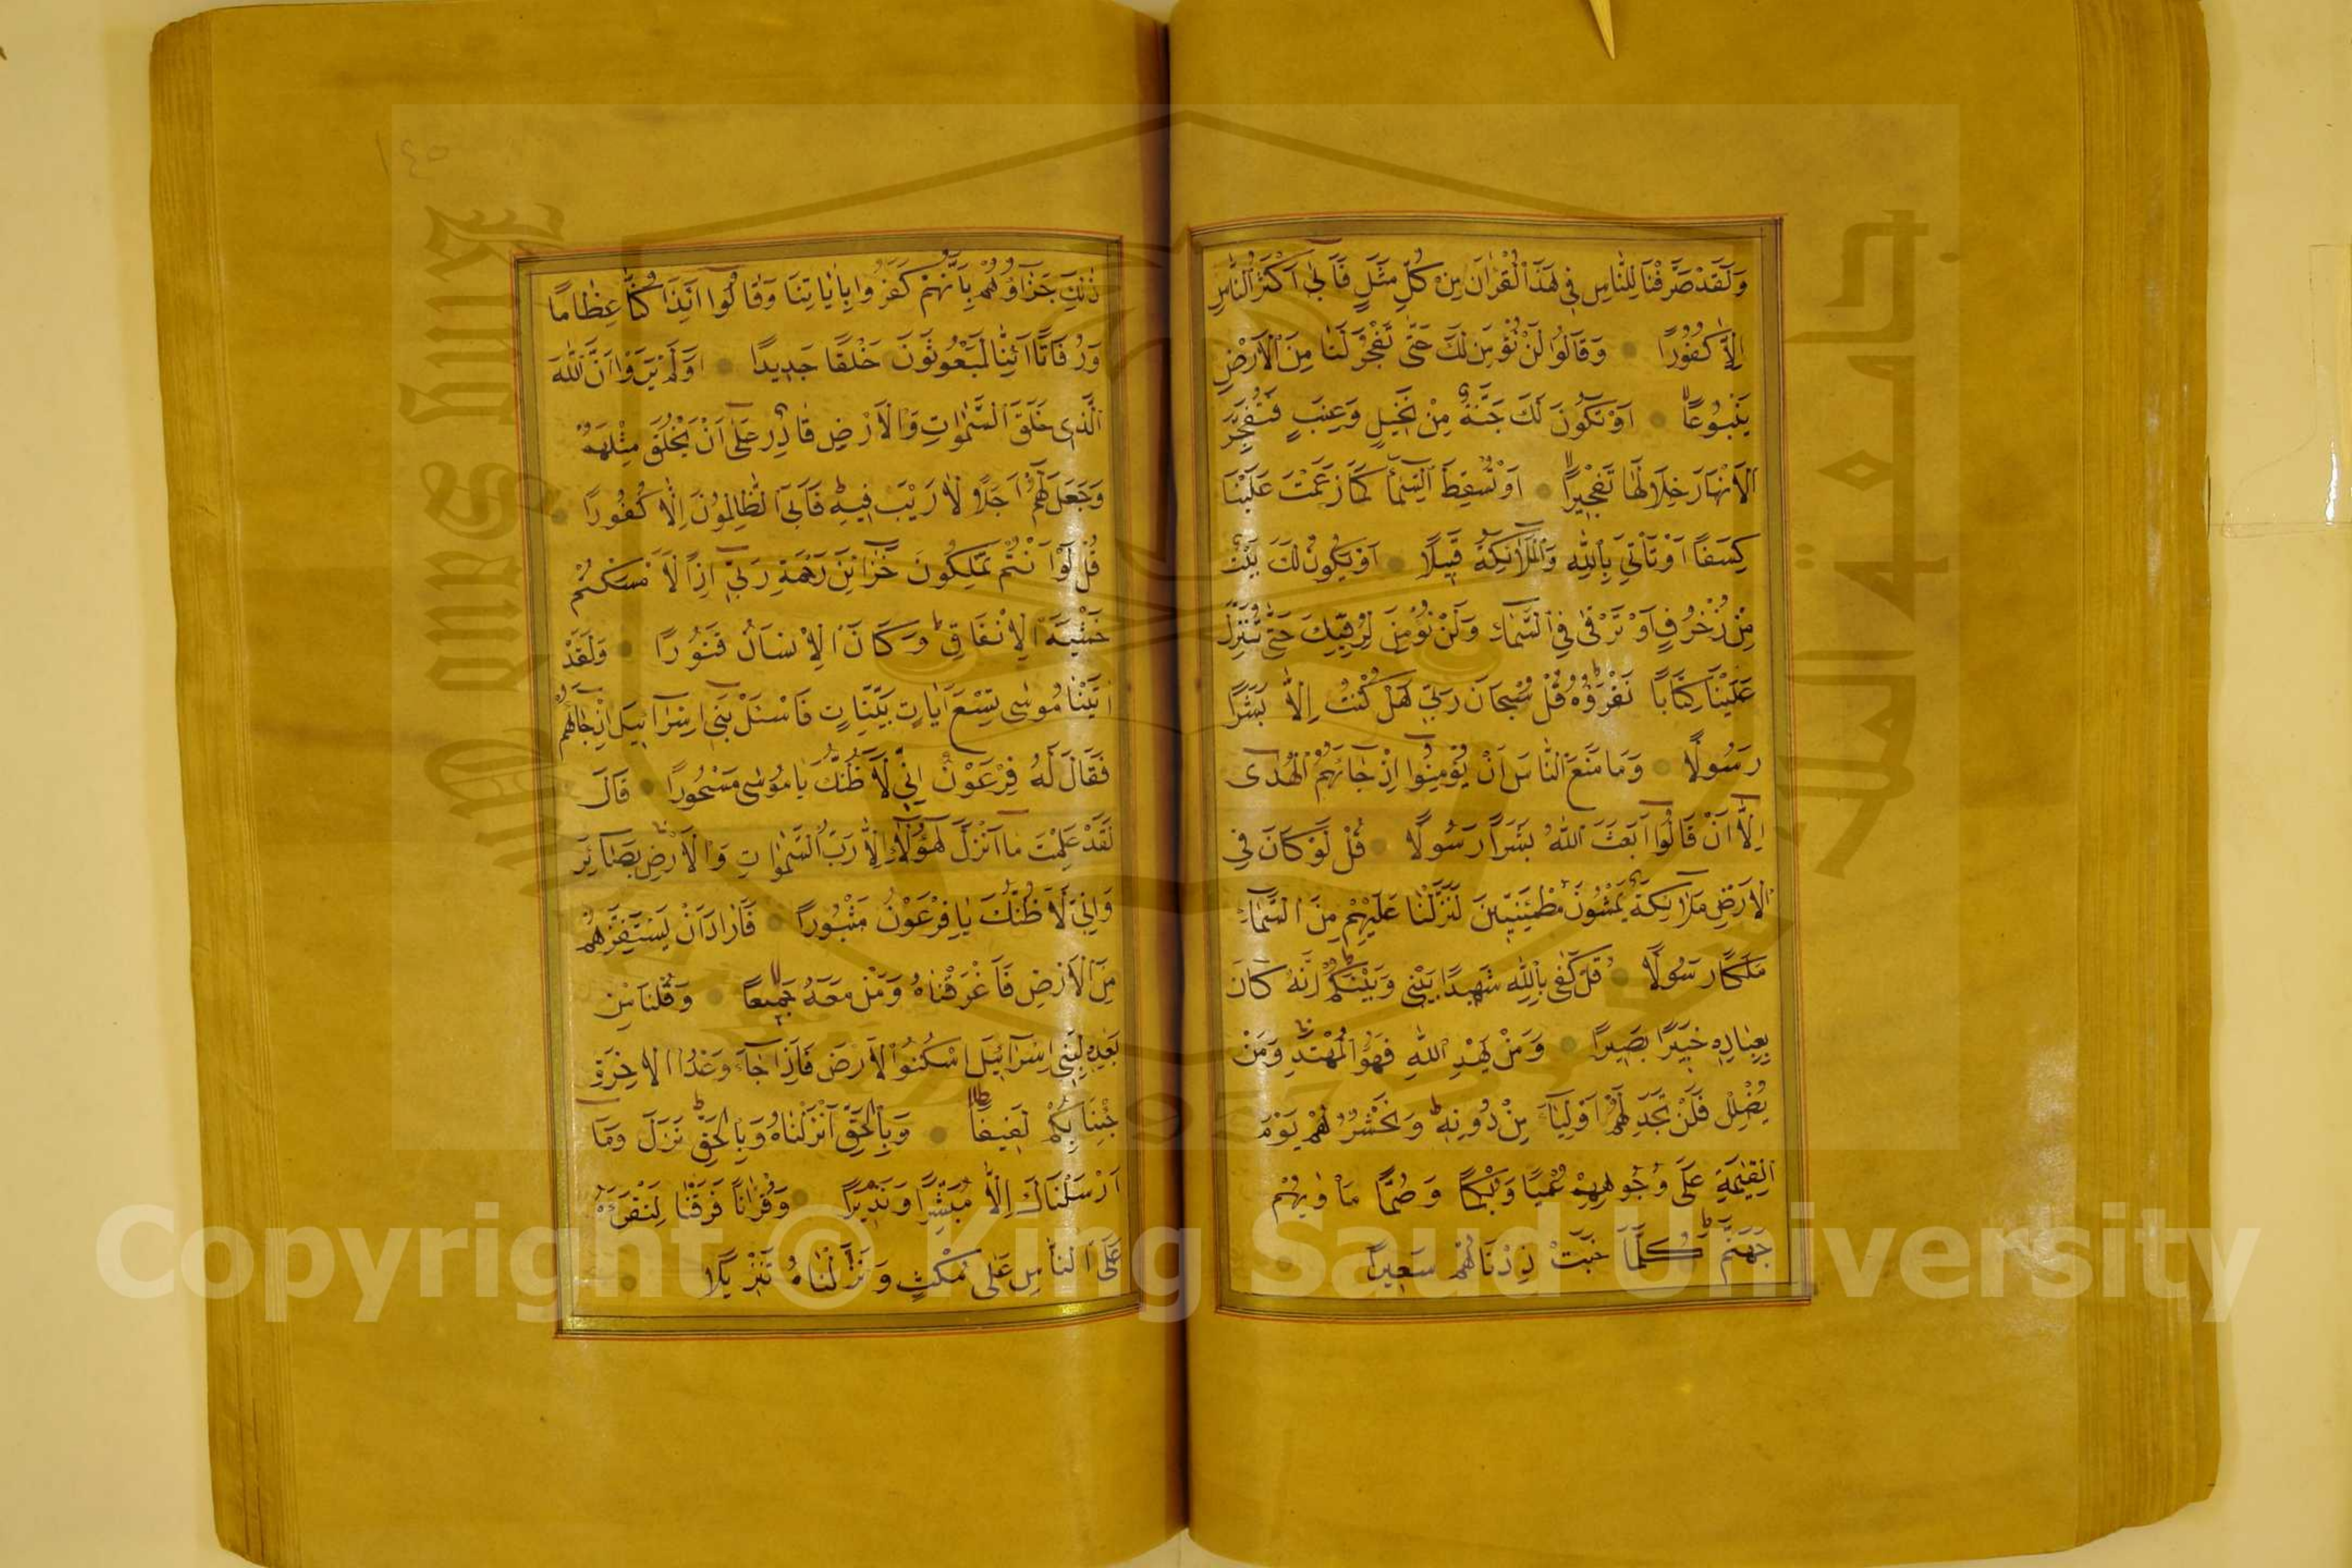 وَلَقَدْ صَرَّفْنَا لِلنَّاسِ فِي هٰذَا الْقُرْاٰنِ مِنْ كُلِّ مَثَلٍ فَاَبٰى اَكْثَرُ النَّاسِ
اِلَّا كُفُورًا وَقَالُوا لَنْ نُؤْمِنَ لَكَ حَتّٰى تَفْجُرَ لَنَا مِنَ الْاَرْضِ
يَنْبُوعًا اَوْ تَكُونَ لَكَ جَنَّةٌ مِنْ نَخِيلٍ وَعِنَبٍ فَتُفَجِّرَ
الْاَنْهَارَ خِلَالَهَا تَفْجِيرًا اَوْ تُسْقِطَ السَّمَاءَ كَمَا زَعَمْتَ عَلَيْنَا
كِسَفًا اَوْ تَأْتِيَ بِاللّٰهِ وَالْمَلَائِكَةِ قَبِيلًا اَوْ يَكُونَ لَكَ بَيْتٌ
مِنْ زُخْرُفٍ اَوْ تَرْقٰى فِي السَّمَاءِ وَلَنْ نُؤْمِنَ لِرُقِيِّكَ حَتّٰى تُنَزِّلَ
عَلَيْنَا كِتَابًا نَقْرَؤُهُ قُلْ سُبْحَانَ رَبِّي هَلْ كُنْتُ اِلَّا بَشَرًا
رَسُولًا وَمَا مَنَعَ النَّاسَ اَنْ يُؤْمِنُوا اِذْ جَاءَهُمُ الْهُدٰى
اِلَّا اَنْ قَالُوا اَبَعَثَ اللّٰهُ بَشَرًا رَسُولًا قُلْ لَوْ كَانَ فِي
الْاَرْضِ مَلَائِكَةٌ يَمْشُونَ مُطْمَئِنِّينَ لَنَزَّلْنَا عَلَيْهِمْ مِنَ السَّمَاءِ
مَلَكًا رَسُولًا قُلْ كَفٰى بِاللّٰهِ شَهِيدًا بَيْنِي وَبَيْنَكُمْ اِنَّهُ كَانَ
بِعِبَادِهِ خَبِيرًا بَصِيرًا وَمَنْ يَهْدِ اللّٰهُ فَهُوَ الْمُهْتَدِ وَمَنْ
يُضْلِلْ فَلَنْ تَجِدَ لَهُمْ اَوْلِيَاءَ مِنْ دُونِهِ وَنَحْشُرُهُمْ يَوْمَ
الْقِيٰمَةِ عَلٰى وُجُوهِهِمْ عُمْيًا وَبُكْمًا وَصُمًّا مَأْوٰيهُمْ
جَهَنَّمُ كُلَّمَا خَبَتْ زِدْنَاهُمْ سَعِيرًا
١٤٥
ذٰلِكَ جَزَاؤُهُمْ بِاَنَّهُمْ كَفَرُوا بِاٰيَاتِنَا وَقَالُوا ءَاِذَا كُنَّا عِظَامًا
وَرُفَاتًا ءَاِنَّا لَمَبْعُوثُونَ خَلْقًا جَدِيدًا اَوَلَمْ يَرَوْا اَنَّ اللّٰهَ
الَّذِي خَلَقَ السَّمٰوَاتِ وَالْاَرْضَ قَادِرٌ عَلٰى اَنْ يَخْلُقَ مِثْلَهُمْ
وَجَعَلَ لَهُمْ اَجَلًا لَا رَيْبَ فِيهِ فَاَبَى الظَّالِمُونَ اِلَّا كُفُورًا
قُلْ لَوْ اَنْتُمْ تَمْلِكُونَ خَزَائِنَ رَحْمَةِ رَبِّي اِذًا لَاَمْسَكْتُمْ
خَشْيَةَ الْاِنْفَاقِ وَكَانَ الْاِنْسَانُ قَتُورًا وَلَقَدْ
اٰتَيْنَا مُوسٰى تِسْعَ اٰيَاتٍ بَيِّنَاتٍ فَاسْئَلْ بَنِي اِسْرَائِيلَ اِذْ جَاءَهُمْ
فَقَالَ لَهُ فِرْعَوْنُ اِنِّي لَاَظُنُّكَ يَا مُوسٰى مَسْحُورًا قَالَ
لَقَدْ عَلِمْتَ مَا اَنْزَلَ هٰؤُلَاءِ اِلَّا رَبُّ السَّمٰوَاتِ وَالْاَرْضِ بَصَائِرَ
وَاِنِّي لَاَظُنُّكَ يَا فِرْعَوْنُ مَثْبُورًا فَاَرَادَ اَنْ يَسْتَفِزَّهُمْ
مِنَ الْاَرْضِ فَاَغْرَقْنَاهُ وَمَنْ مَعَهُ جَمِيعًا وَقُلْنَا مِنْ
بَعْدِهِ لِبَنِي اِسْرَائِيلَ اسْكُنُوا الْاَرْضَ فَاِذَا جَاءَ وَعْدُ الْاٰخِرَةِ
جِئْنَا بِكُمْ لَفِيفًا وَبِالْحَقِّ اَنْزَلْنَاهُ وَبِالْحَقِّ نَزَلَ وَمَا
اَرْسَلْنَاكَ اِلَّا مُبَشِّرًا وَنَذِيرًا وَقُرْاٰنًا فَرَقْنَاهُ لِتَقْرَاَهُ
عَلَى النَّاسِ عَلٰى مُكْثٍ وَنَزَّلْنَاهُ تَنْزِيلًا
جامعة الملك سعود
King Saud University
1957
Copyright © King Saud University